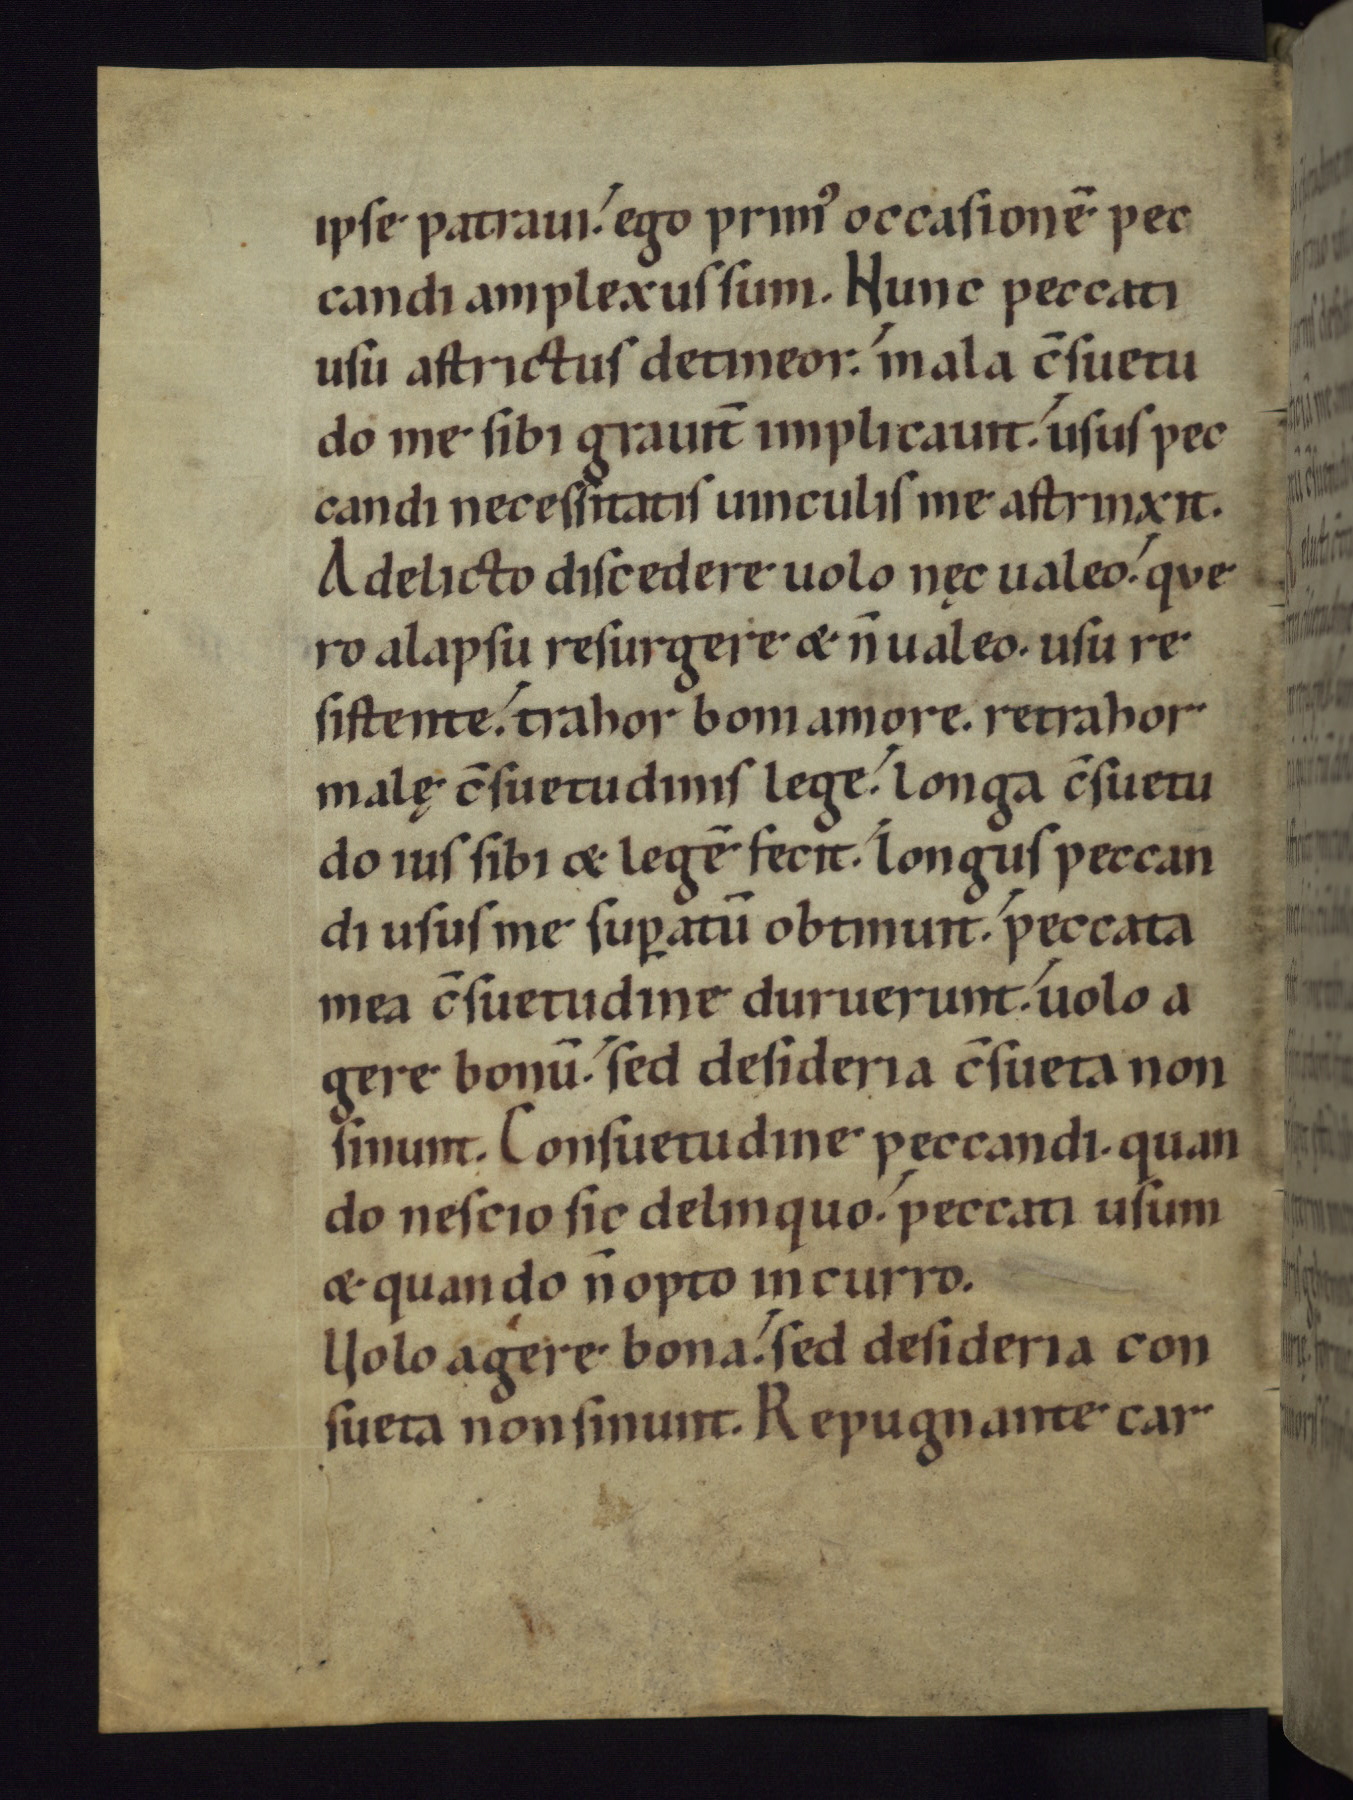 ipse patraui. ego prim᷒ occasionē pec
candi amplexus sum. Nunc peccati
usu astrictus detineor. mala c̄suetu
do me sibi grauit̄ implicauit. usus pec
candi necessitatis uinculis me astrinxit.
A delicto discedere uolo nęc ualeo. que
ro a lapsu resurgere & n̄ ualeo. usu re
sistente. trahor boni amore. retrahor
malę c̄suetudinis lege. longa c̄suetu
do ius sibi & legē fecit. longus peccan
di usus me suꝑatū obtinuit. peccata
mea c̄suetudine duruerunt. uolo a
gere bonū. sed desideria c̄sueta non
sinunt. Consuetudine peccandi. quan
do nescio sic delinquo. peccati usum
& quando n̄ opto incurro.
Uolo agere bona. sed desideria con
sueta non sinunt. Repugnante car